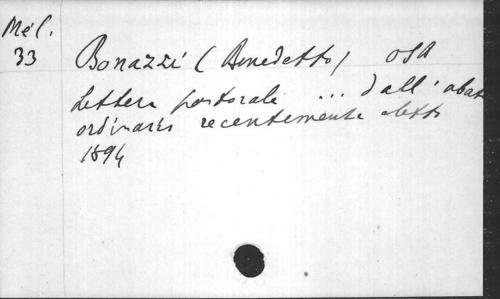 Mél.
33
Bonazzi (Benedetto) OSB
Lettera pastorale ... dall'abat
ordinario recentemente eletto
1894